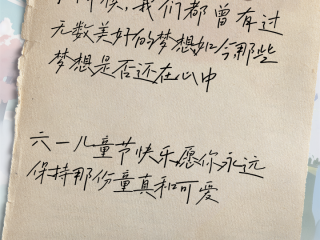 我们都曾有过
无数美好的梦想如今那些
梦想是否还在心中
六一儿童节快乐愿你永远
保持那份童真和可爱